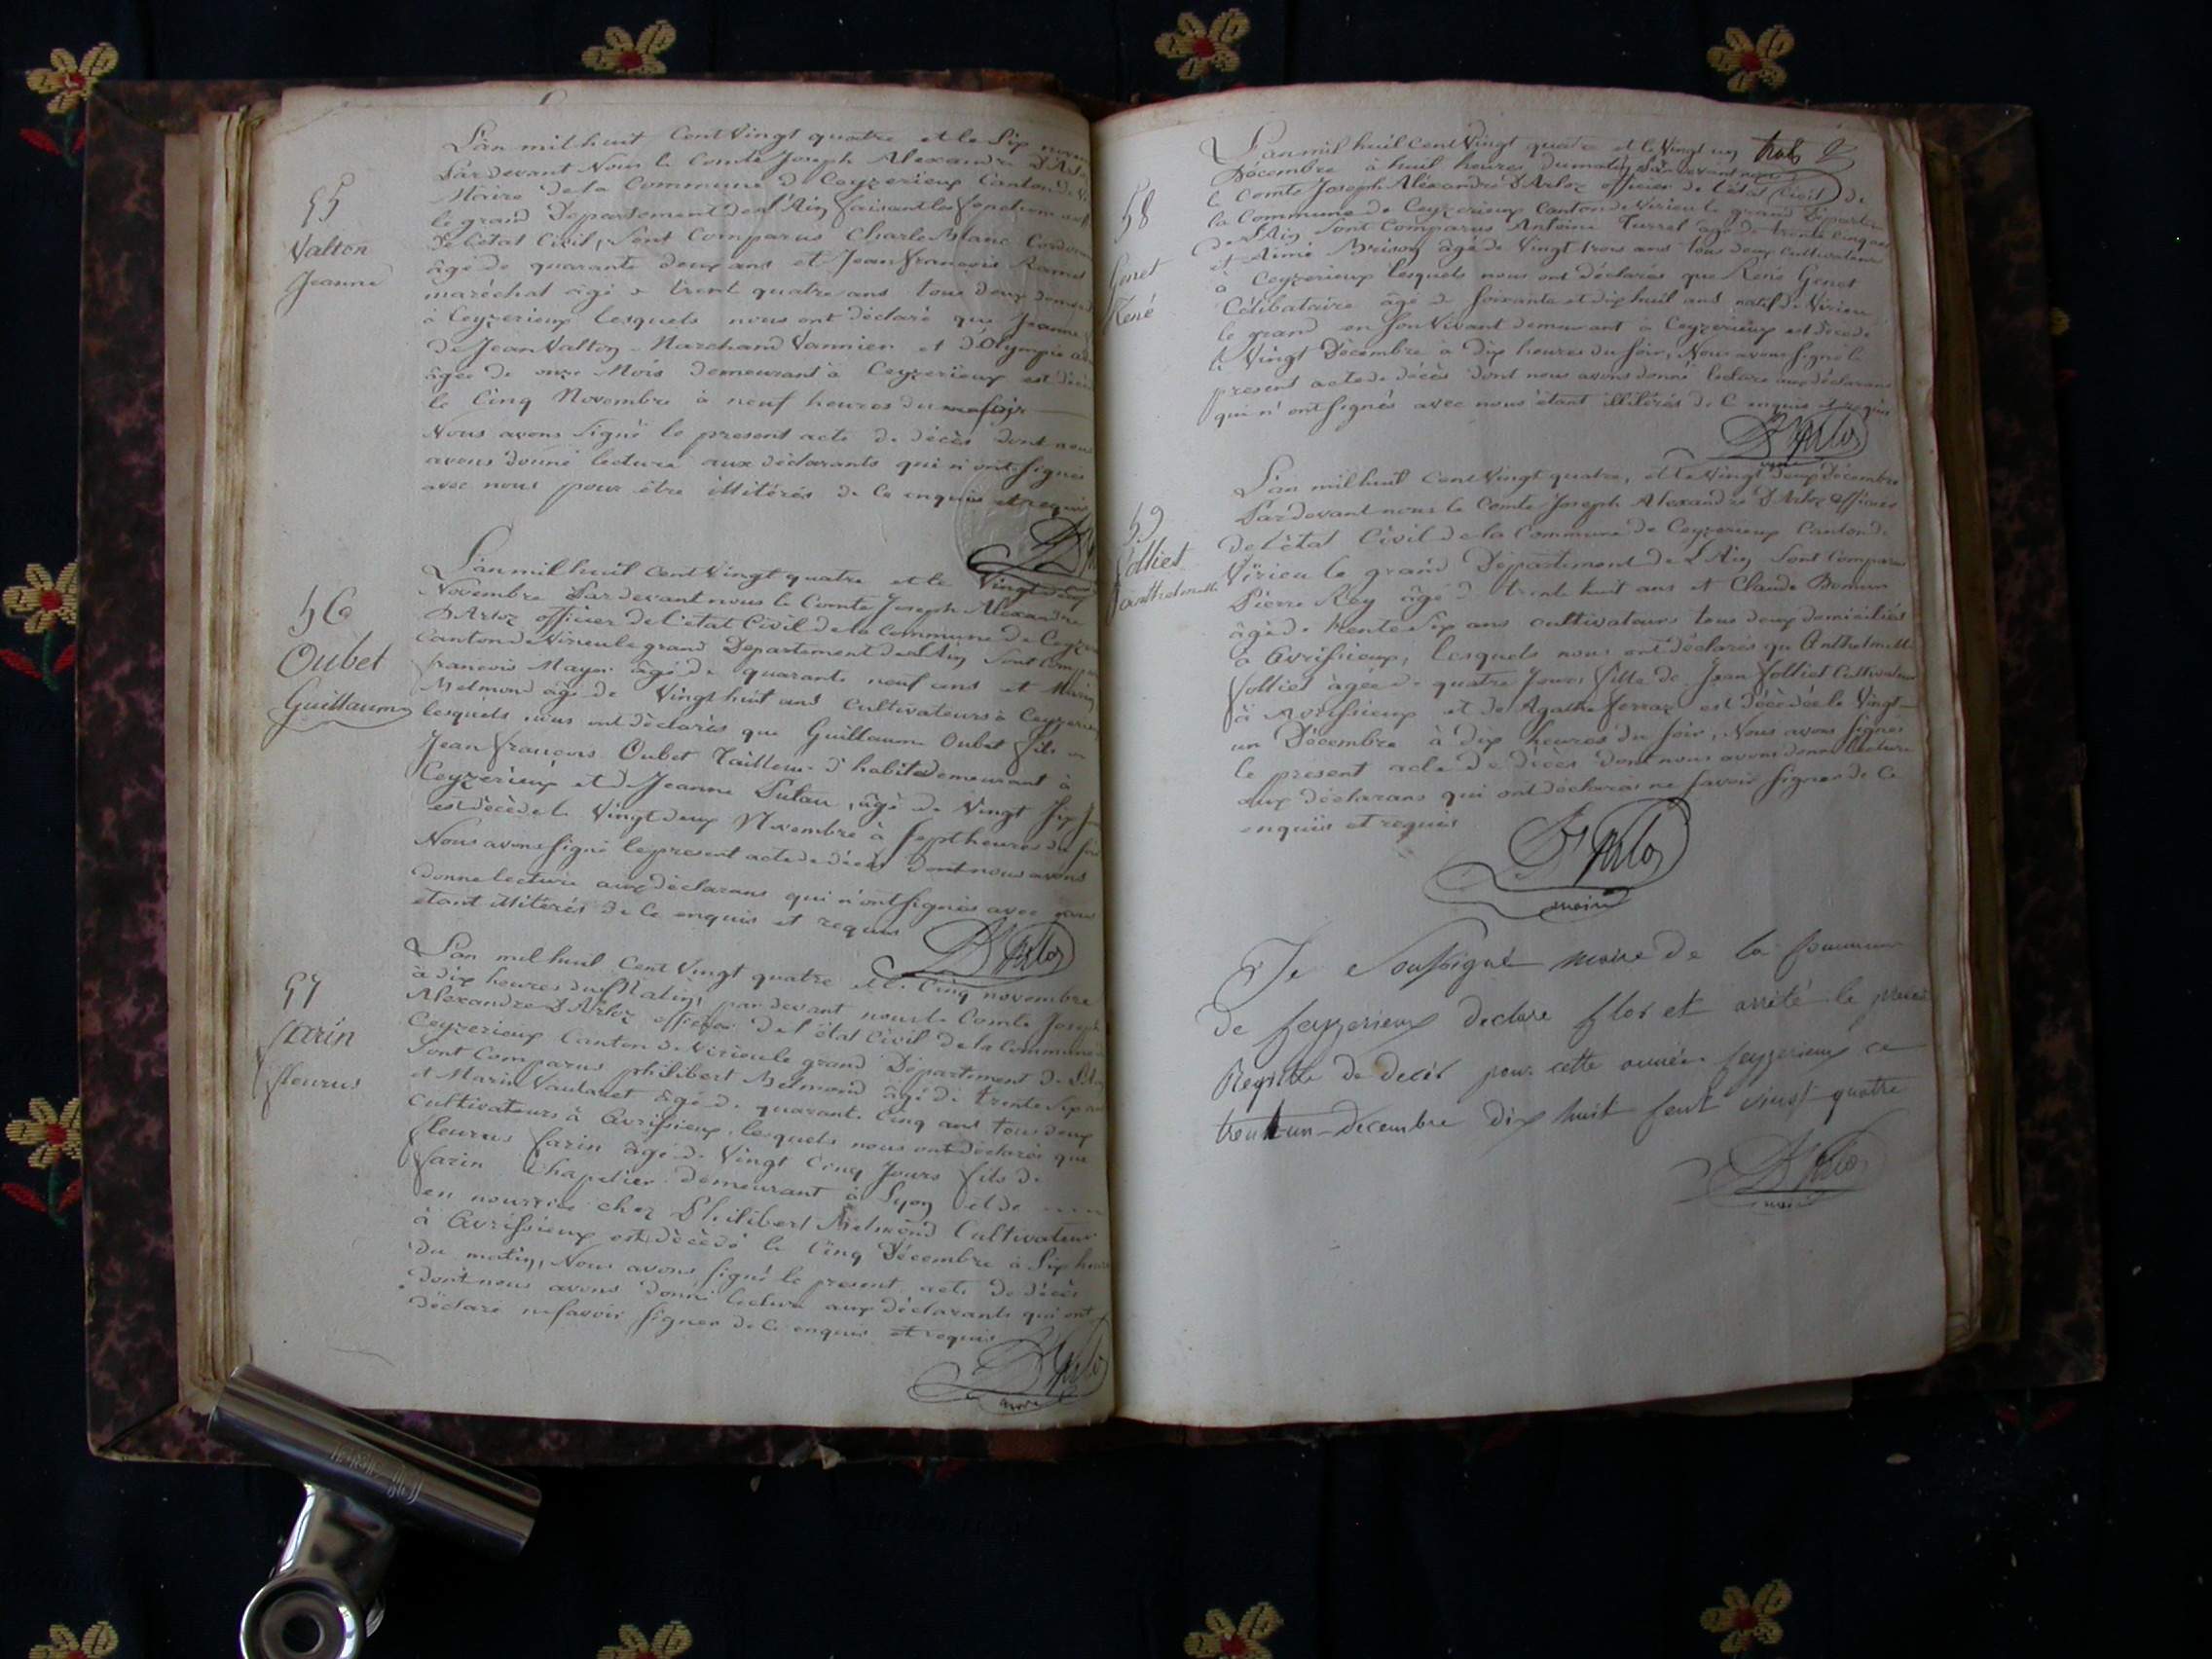 55
Valton
Jeanne
L'an mil huit cent Vingt quatre et le Six
Pardevant Nous le Comte Joseph Alexandre
Maire de la Commune de Ceyzerieux Canton de
le grand Departement de l'Ain faisant les fonctions
de l'etat Civil, Sont Comparus Charle Blanc
âgé de quarante deux ans et Jean francois Ramel
maréchal âgé de trent quatre ans tous deux
à Ceyzerieux lesquels nous ont déclaré que Jeanne
de Jean Valton Marchand Vannier et d'Olympie
âgée de onze Mois demeurant à Ceyzerieux est
le Cinq Novembre à neuf heures du soir
Nous avons signé le present acte de décès dont nous
avons donné lecture aux déclarants qui n'ont signés
avec nous pour être illitérés de Ce enquis et requis
56
Oubet
Guillaume
L'an mil huit cent Vingt quatre et le Vingt deux
Novembre Pardevant nous le Comte Joseph Alexandre
D'Arloz officier de l'etat Civil de la Commune de
Canton de Virieu le grand Departement de l'Ain Sont
francois Mayer âgé de quarante neuf ans et
Melmond âgé de Vingt huit ans Cultivateurs à
lesquels nous ont déclarés que Guillaume Oubet fils
Jean francois Oubet Tailleur d'habits demeurant à
Ceyzérieux et de Jeanne Putau, âgé de Vingt Six
est décédé le Vingt deux Novembre à Sept heures du soir
Nous avons signé le present acte de décès Dont nous avons
donne lecture aux déclarans qui n'ont signés avec nous
étant illitérés de Ce enquis et requis
D'Arloz
57
farin
fleurus
L'an mil huit Cent Vingt quatre et le Cinq novembre
à dix heures du Matin, par devant nous le Comte Joseph
Alexandre D'Arloz officier de l'état Civil de la Commune
Ceyzerieux Canton de Virieu le grand Département de l'Ain
Sont Comparus philibert Melmond âgé de trente Six
et Marin Vaularet âgé de quarante Cinq ans tous deux
Cultivateurs à Avrissieux, lesquels nous ont déclarés que
fleurus farin âgé de Vingt Cinq Jours fils de
farin Chapelier demeurant à Lyon et de
en nourrice chez Philibert Melmond Cultivateur
à Avrissieux est décédé le Cinq Décembre à Six
du matin, Nous avons signé le present acte de décès
dont nous avons donné lecture aux déclarants qui ont
déclaré ne savoir signer de Ce enquis et requis
D'Arloz
maire
58
Genet
René
L'an mil huit Cent Vingt quatre et le Vingt un
Décembre à huit heures du matin Pardevant nous
le Comte Joseph Aléxandre D'Arloz officier de l'état Civil de
la Commune de Ceyzerieux Canton de Virieu le grand
de l'Ain Sont Comparus Antoine Turrel âgé de trente Cinq ans
et Aimé Brison âgé de Vingt trois ans tous deux Cultivateurs
à Ceyzerieux lesquels nous ont déclarés que René Genet
Célibataire âgé de Soixante et dix huit ans natif de Virieu
le grand en son Vivant demeurant à Ceyzerieux est décedé
le Vingt Décembre à dix heures du soir, Nous avons signé le
present acte de décès dont nous avons donné lecture aux déclarans
qui n'ont signés avec nous étant illitérés de C enquis et requis
D'Arloz
59
Volliet
Anthelmette
L'an mil huit Cent Vingt quatre, et le Vingt deux Décembre
Pardevant nous le Comte Joseph Alexandre D'Arloz officier
de l'état Civil de la Commune de Ceyzerieux Canton de
Virieu le grand Département de l'Ain Sont Comparus
Pierre Rey âgé de trente huit ans et Claude
âgé de trente Six ans cultivateurs tous deux domiciliés
à Avrissieux, lesquels nous ont déclarés qu Anthelmette
Volliet âgée de quatre Jours fille de Jean Volliet Cultivateur
à Avrissieux et de Agathe ferraz est décédée le Vingt
un Décembre à dix heures du soir, Nous avons signés
le present acte de décès dont nous avons donné lecture
aux déclarans qui ont déclarés ne savoir signer de Ce
enquis et requis
D'Arloz
maire
Je Soussigné maire de la Commune
de Ceyzerieux declare Clos et arrêté le
Registre de decès pour cette année Ceyzerieux ce
trent un decembre dix huit Cent vingt quatre
D'Arloz
maire